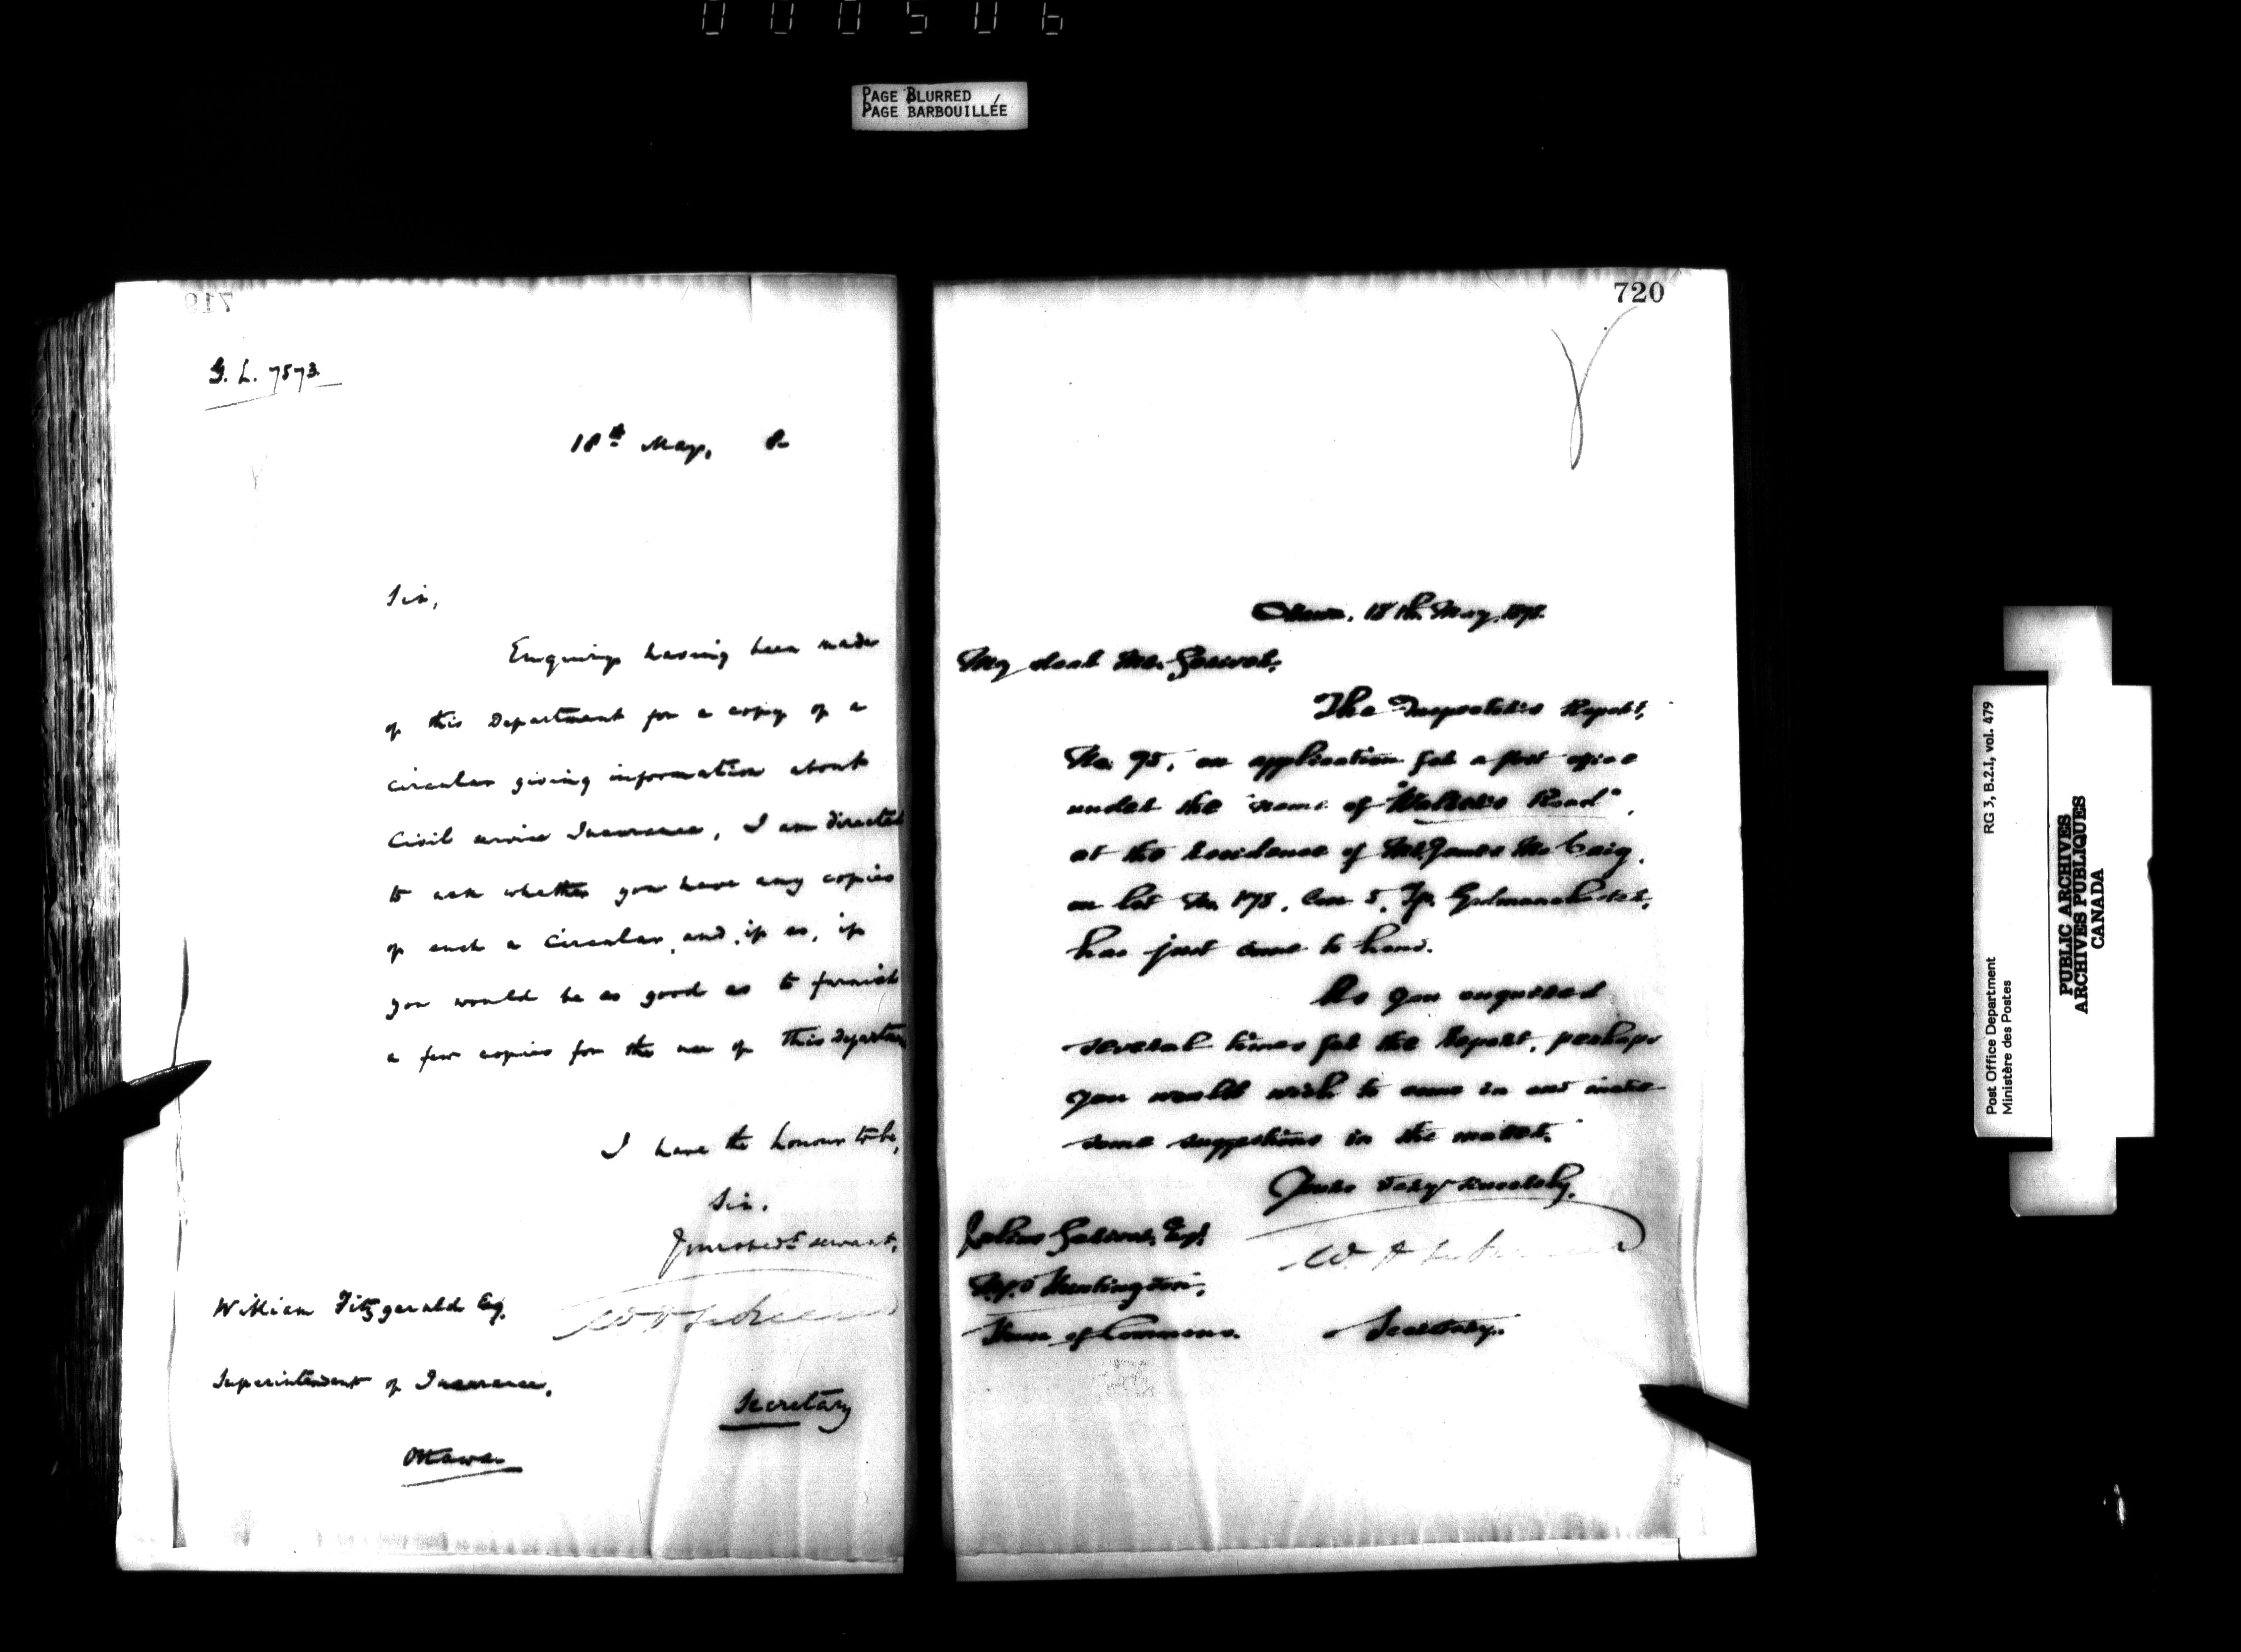 000506
PAGE BLURRED
PAGE BARBOUILLÉE
719
G. L. 7573.
18th May, 8
Sir,
Enquiry having been made
of this Department for a copy of a
circular giving information about
Civil service Insurance, I am directed
to ask whether you have any copies
of such a Circular, and, if so, if
you would be so good as to furnish
a few copies for the use of this Departm
I have the honour to be,
Sir.
Your obedt servant,
William Fitzgerald Esq.
Superintendent of Insurance,
Secretary
Ottawa
720
Ottawa, 18th May, 1878.
My dear Mr.
The Inspector's Report,
No. 95, on application for a post office
under the name of "          Road",
at the residence of Mr. James McCaig,
on lot No. 178, Con 5, Tp. Godmanchester,
has just come to hand.
As you enquired
several times for the Report, perhaps
you would wish to come in and make
some suggestions in the matter.
Yours very sincerely,
Julius          , Esq.
M.P. Huntingdon,
House of Commons.
Secretary.
Post Office Department
Ministère des Postes
RG 3, B.2.I, vol. 479
PUBLIC ARCHIVES
ARCHIVES PUBLIQUES
CANADA